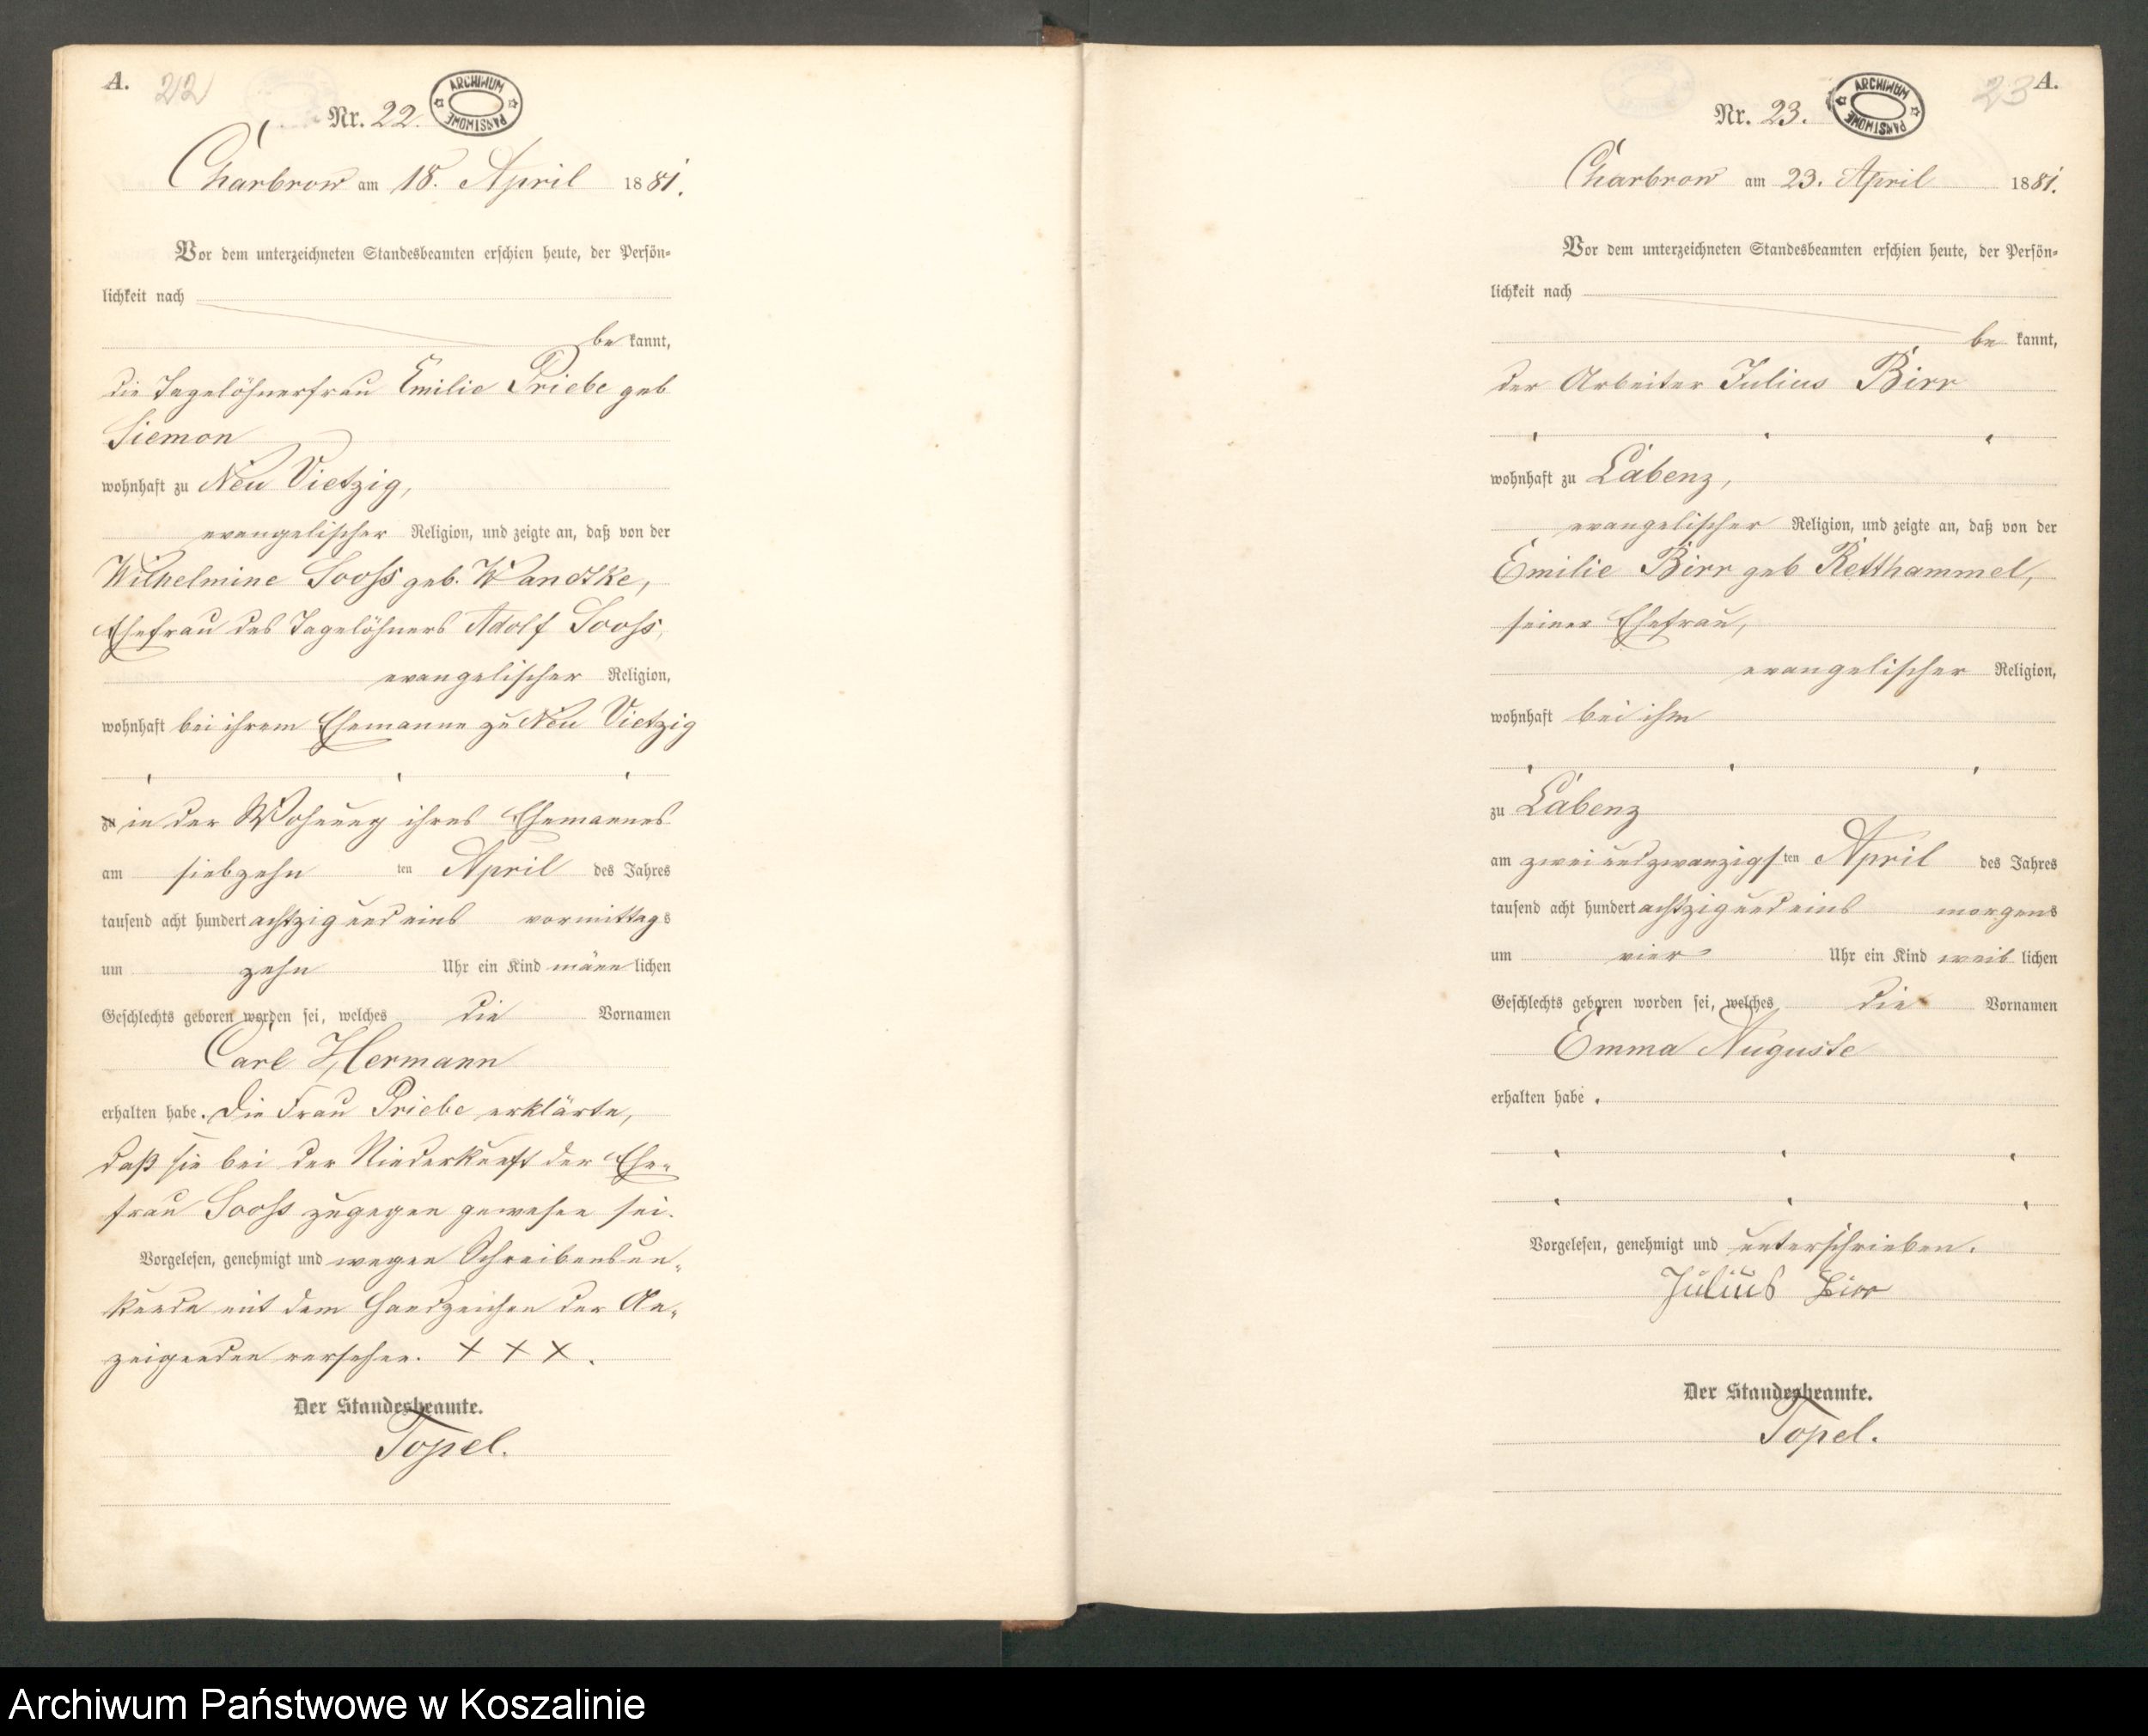 A. 22
Nr. 22.
ARCHIWUM PAŃSTWOWE
Charbrow am 18. April 1881.
Vor dem unterzeichneten Standesbeamten erschien heute, der Persön=
lichkeit nach
be kannt,
die Tagelöhnerfrau Emilie Priebe geb
Siemon
wohnhaft zu Neu Vietzig,
evangelischer Religion, und zeigte an, daß von der
Wilhelmine Sooss geb. Wandtke,
Ehefrau des Tagelöhners Adolf Sooss,
evangelischer Religion,
wohnhaft bei ihrem Ehemanne zu Neu Vietzig
zu in der Wohnung ihres Ehemannes
am siebzehn ten April des Jahres
tausend acht hundert achtzig und eins vormittags
um zehn Uhr ein Kind männ lichen
Geschlechts geboren worden sei, welches die Vornamen
Carl Hermann
erhalten habe. Die Frau Priebe erklärte,
daß sie bei der Niederkunft der Ehe=
frau Sooss zugegen gewesen sei.
Vorgelesen, genehmigt und wegen Schreibensun=
kunde mit dem Handzeichen der An=
zeigenden versehen. + + +.
Der Standesbeamte.
Topel.
23 A.
Nr. 23.
ARCHIWUM PAŃSTWOWE
Charbrow am 23. April 1881.
Vor dem unterzeichneten Standesbeamten erschien heute, der Persön=
lichkeit nach
be kannt,
der Arbeiter Julius Birr
wohnhaft zu Labenz,
evangelischer Religion, und zeigte an, daß von der
Emilie Birr geb Retthammel,
seiner Ehefrau,
evangelischer Religion,
wohnhaft bei ihm
zu Labenz
am zweiundzwanzigsten April des Jahres
tausend acht hundert achtzig und eins morgens
um vier Uhr ein Kind weib lichen
Geschlechts geboren worden sei, welches die Vornamen
Emma Auguste
erhalten habe.
Vorgelesen, genehmigt und unterschrieben.
Julius Birr
Der Standesbeamte.
Topel.
Archiwum Państwowe w Koszalinie